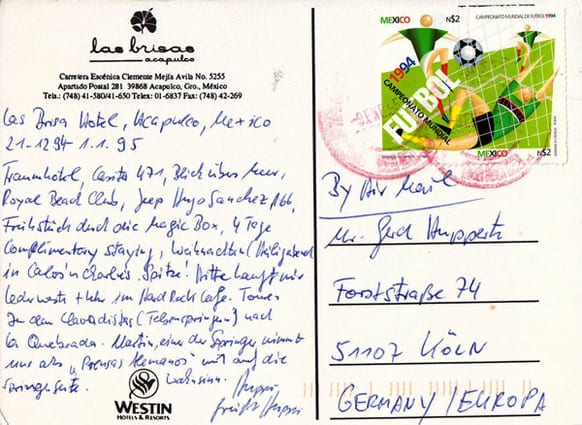 las brisas
acapulco
Carretera Escénica Clemente Mejía Avila No. 5255
Apartado Postal 281 39868 Acapulco, Gro., México
Tels.: (748) 41-580/41-650 Telex: 01-6837 Fax: (748) 42-269
Las Brisa Hotel, Acapulco, Mexico
21.12.94 1.1.95
Traumhotel, Casita 471, Blick übers Meer,
Royal Beach Club, Jeep Hugo Sanchez
Frühstück durch die Magic Box, 4 Tage
Complimentary staying, Weihnachten (Heiligabend
in Carlos'n Charlie's. Spitze! Mitte kauft mir
Lederweste + Uhr im Hard Rock Cafe. Tour
Zu den Clavadistas (Felsenspringern) nach
La Quebrada. Martin, einer der Springer nimmt
uns als „Prensas Alemanas" mit auf die
Springerseite.
Wahnsinn.
WESTIN
HOTELS & RESORTS
MEXICO
N$2
1994
CAMPEONATO MUNDIAL
FUTBOL
CAMPEONATO MUNDIAL DE FUTBOL 1994
MEXICO
N$2
By Air Mail
Mr. Gerd Huppertz
Forststraße 74
51107 KÖLN
GERMANY / EUROPA